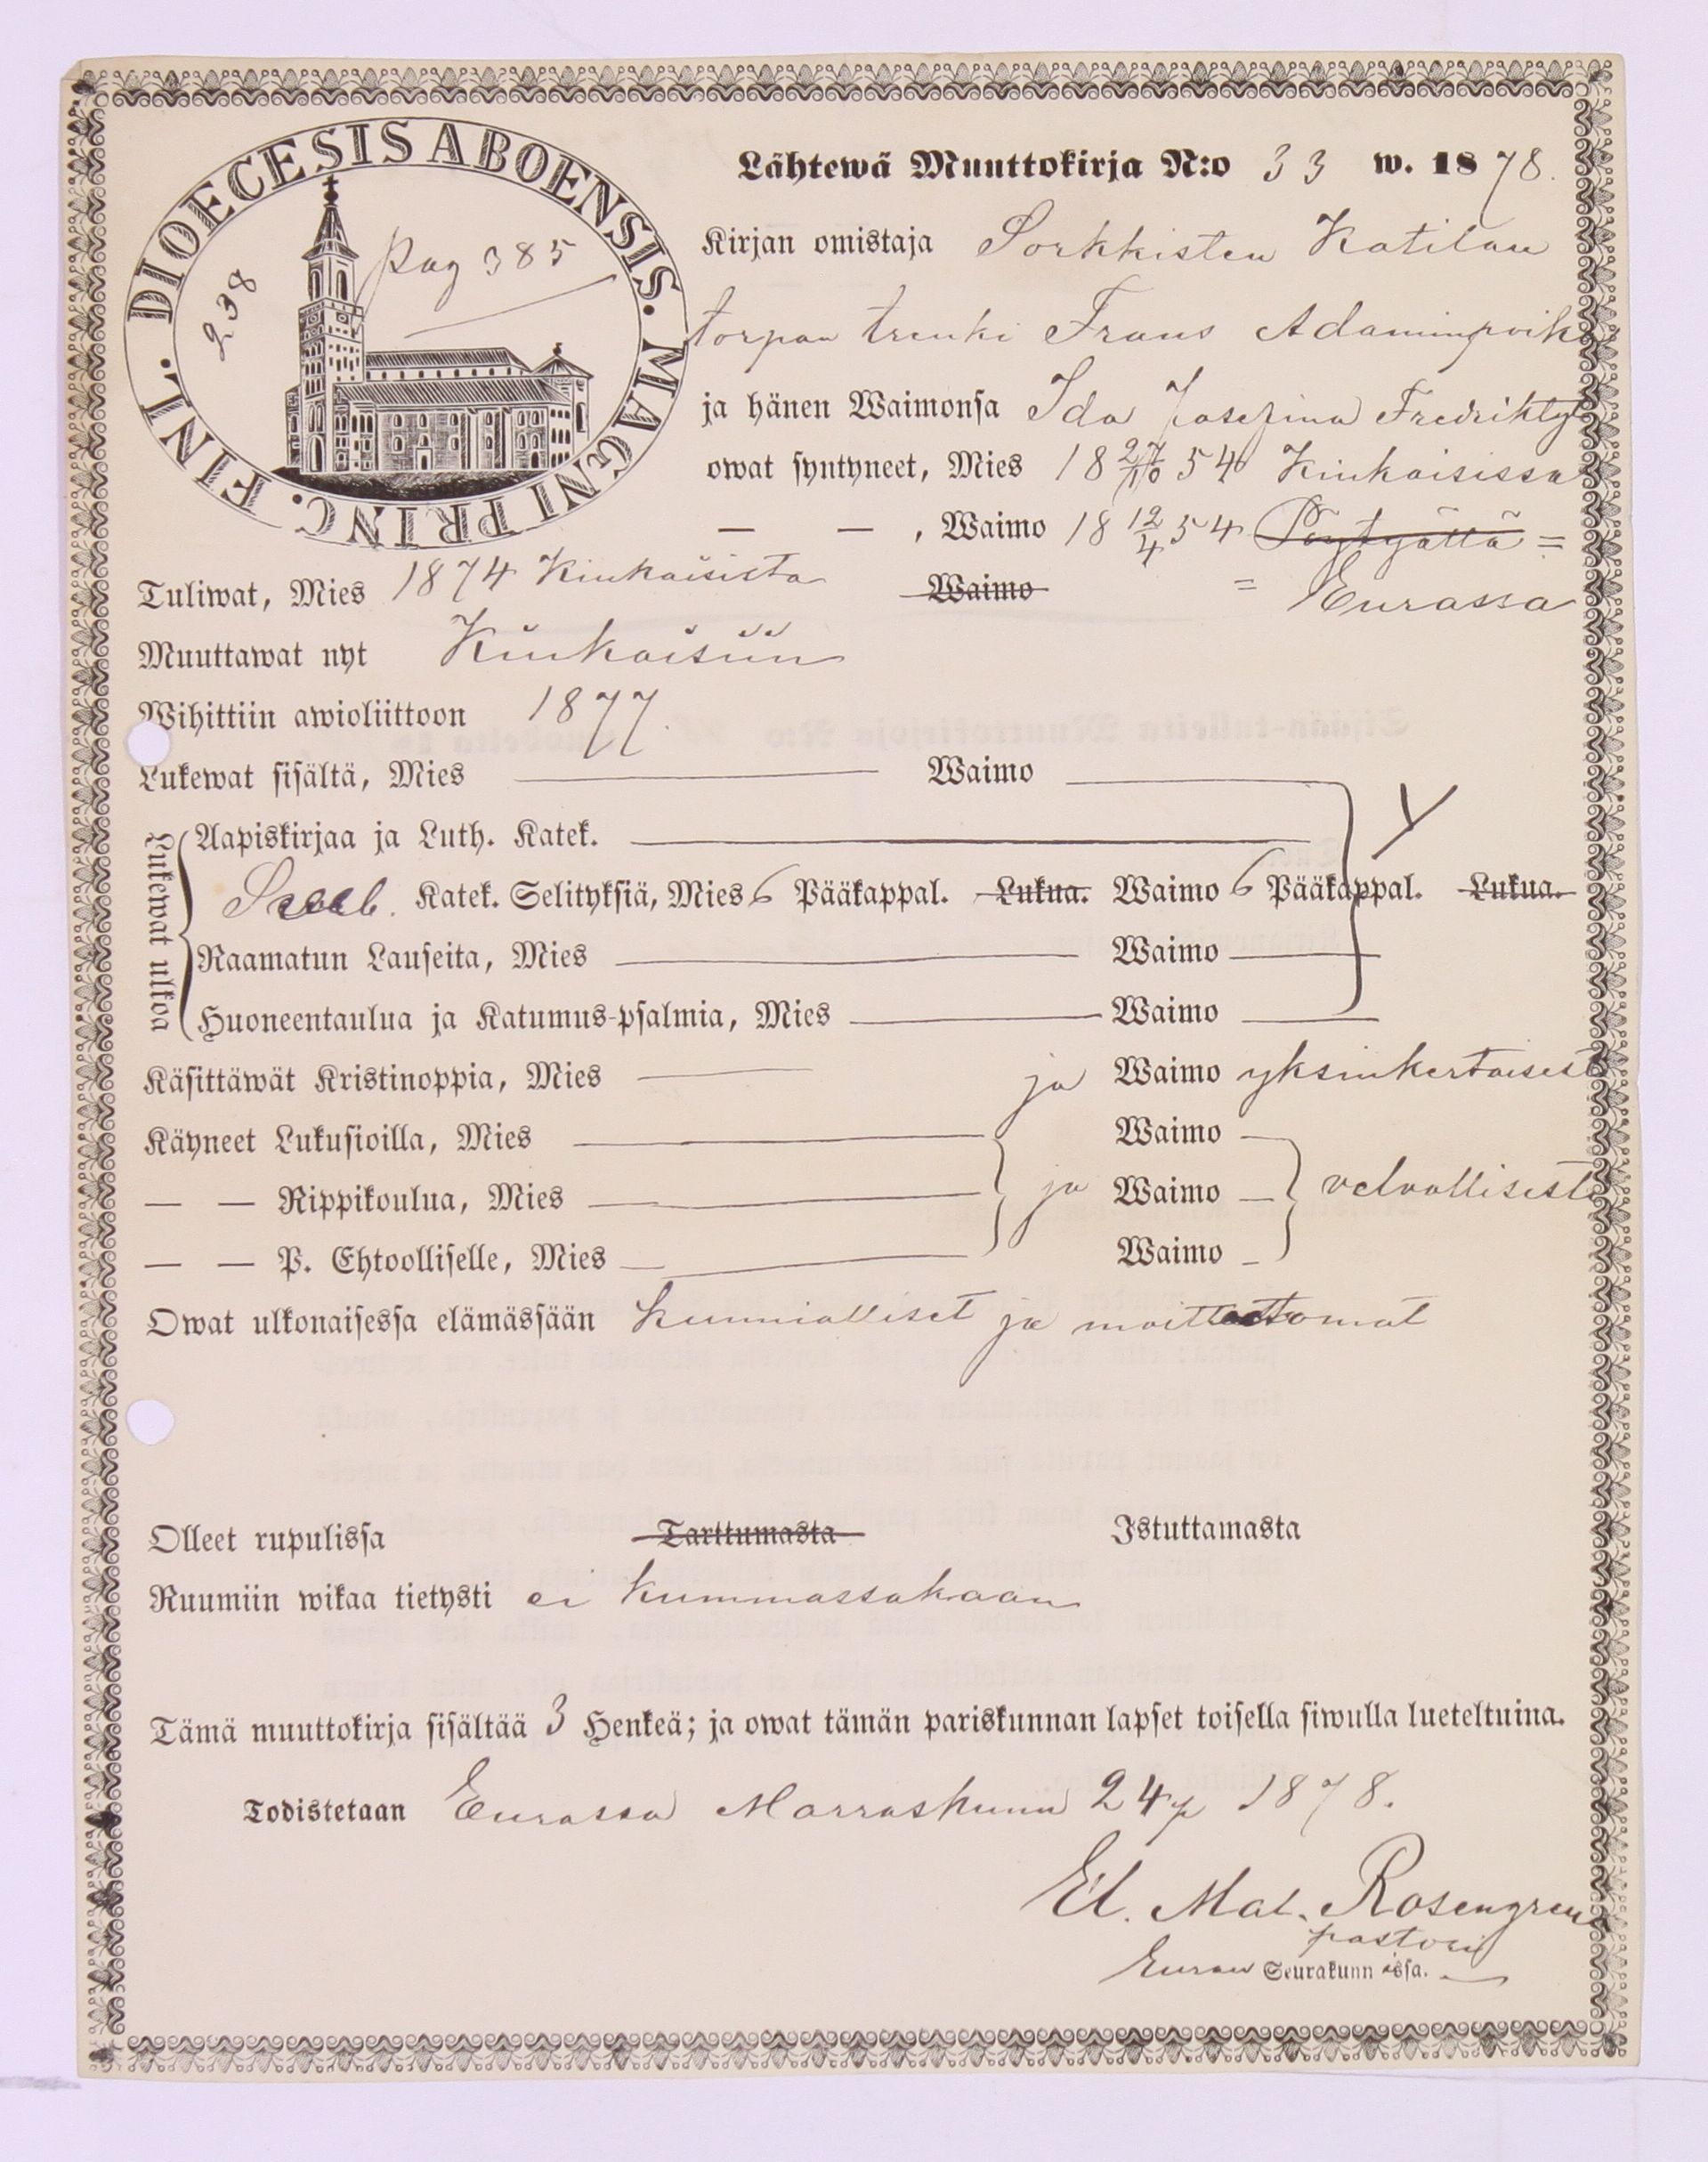 DIOECESIS ABOENSIS. MAGNI PRINC. FINL.
238
Pag 385
Lähtewä Muuttokirja N:o 33 w. 1878.
Kirjan omistaja Sorkkisten Katilan
torpan trenki Frans Adaminpoika
ja hänen Waimonsa Ida Josefina Fredriktyt
owat syntyneet, Mies 18 27/10 54 Kiukaisissa
— — , Waimo 18 12/4 54 Pöytyältä =
Tuliwat, Mies 1874 Kiukaisista Waimo = Eurassa
Muuttawat nyt Kiukaisiin
Wihittiin awioliittoon 1877.
Lukewat sisältä, Mies — Waimo —
Lukewat ulkoa
Aapiskirjaa ja Luth. Katek. —
Sveb. Katek. Selityksiä, Mies 6 Pääkappal. Lukua. Waimo 6 Pääkappal. Lukua.
Raamatun Lauseita, Mies — Waimo —
Huoneentaulua ja Katumus-psalmia, Mies — Waimo —
Käsittäwät Kristinoppia, Mies — ja Waimo yksinkertaisesti
Käyneet Lukusioilla, Mies — Waimo —
— — Rippikoulua, Mies — ja Waimo — velvollisesti
— — P. Ehtoolliselle, Mies — Waimo —
Owat ulkonaisessa elämässään kunnialliset ja moitteettomat
Olleet rupulissa Tarttumasta Istuttamasta
Ruumiin wikaa tietysti ei kummassakaan
Tämä muuttokirja sisältää 3 Henkeä; ja owat tämän pariskunnan lapset toisella siwulla lueteltuina.
Todistetaan Eurassa Marraskuun 24 p 1878.
El. Mat. Rosengren
pastori
Euran Seurakunnissa.